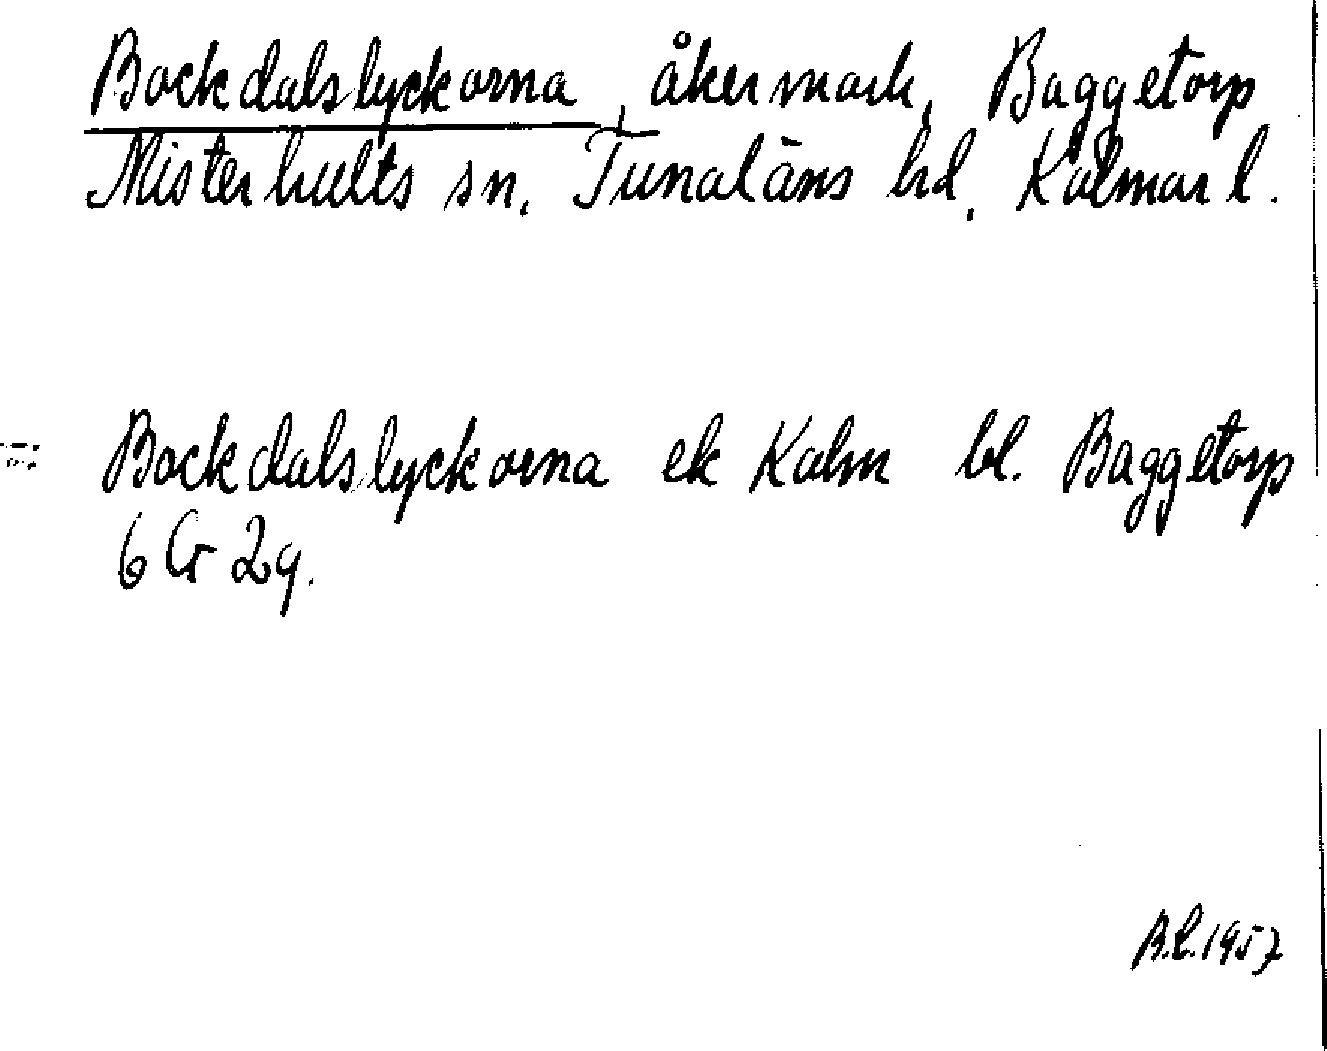 Bockdalslyckorna, åkermark, Baggetorp
Misterhults sn, Tunaläns hd, Kalmar l.
Bockdalslyckorna ek Kalm bl. Baggetorp
6 G 2g.
B.L. 1957